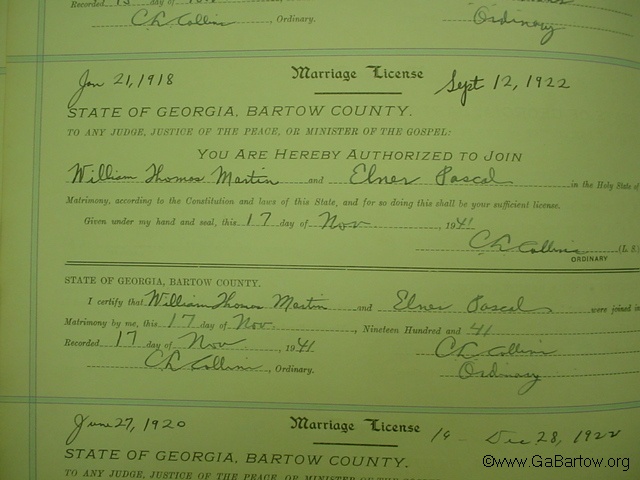 Recorded 13 day of Nov
C L Collins, Ordinary. Ordinary
Jan 21, 1918 Marriage License Sept 12, 1922
STATE OF GEORGIA, BARTOW COUNTY.
TO ANY JUDGE, JUSTICE OF THE PEACE, OR MINISTER OF THE GOSPEL:
YOU ARE HEREBY AUTHORIZED TO JOIN
William Thomas Martin and Elner Pascal in the Holy State of
Matrimony, according to the Constitution and laws of this State, and for so doing this shall be your sufficient license.
Given under my hand and seal, this 17 day of Nov, 1941
C L Collins (L S
ORDINARY
STATE OF GEORGIA, BARTOW COUNTY.
I certify that William Thomas Martin and Elner Pascal were joined in
Matrimony by me, this 17 day of Nov., Nineteen Hundred and 41
Recorded 17 day of Nov, 1941 C L Collins
C L Collins, Ordinary. Ordinary
June 27, 1920 Marriage License Dec 28, 1922
STATE OF GEORGIA, BARTOW COUNTY.
TO ANY JUDGE, JUSTICE OF THE PEACE, OR MINISTER OF THE
©www.GaBartow.org